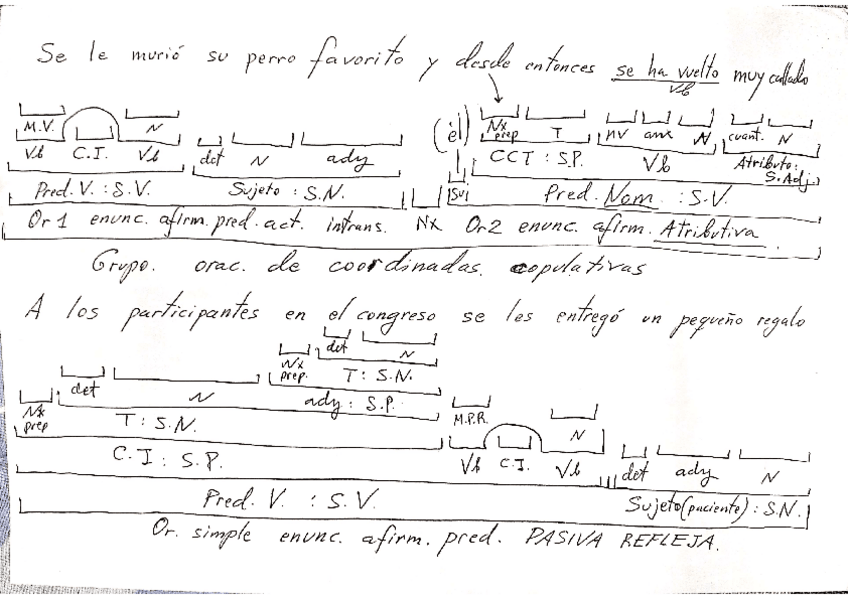 Se le murió su perro favorito y desde entonces se ha vuelto muy callado
Vb
M.V. N (el) Nx prep T nv aux N cuant. N
Vb C.I. Vb det N ady CCT : S.P. Vb Atributo: S.Adj.
Pred. V. : S.V. Sujeto : S.N. Suj Pred. Nom. : S.V.
Or 1 enunc. afirm. pred. act. intrans. Nx Or2 enunc. afirm. Atributiva
Grupo. orac. de coordinadas. copulativas
A los participantes en el congreso se les entregó un pequeño regalo
det N
Nx prep. T : S.N.
det N ady : S.P. M.P.R.
Nx prep T : S.N. N
C.I : S.P. Vb C.I. Vb det ady N
Pred. V. : S.V. Sujeto (paciente) : S.N.
Or. simple enunc. afirm. pred. PASIVA REFLEJA.